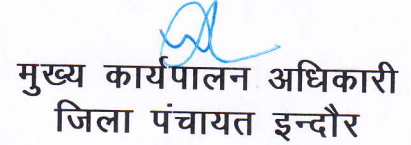 मुख्य कार्यपालन अधिकारी
जिला पंचायत इन्दौर